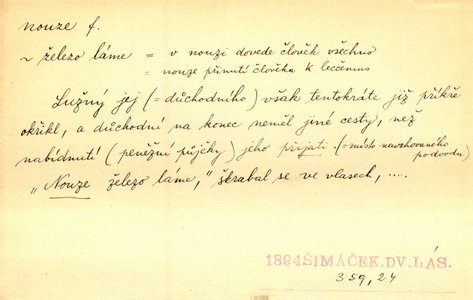 nouze f.
~ železo láme = v nouzi dovede člověk všechno
= nouze přinutí člověka k lecčemus
Lužný jej (= důchodního) však tentokráte již příkře
okřikl, a důchodní na konec neměl jiné cesty, než
nabídnutí (peněžní půjčky) jeho přijati. (= místo navrhovaného
podvodu)
„Nouze železo láme,“ škrabal se ve vlasech, ....
1894 ŠIMÁČEK, DV. LÁS.
359, 24